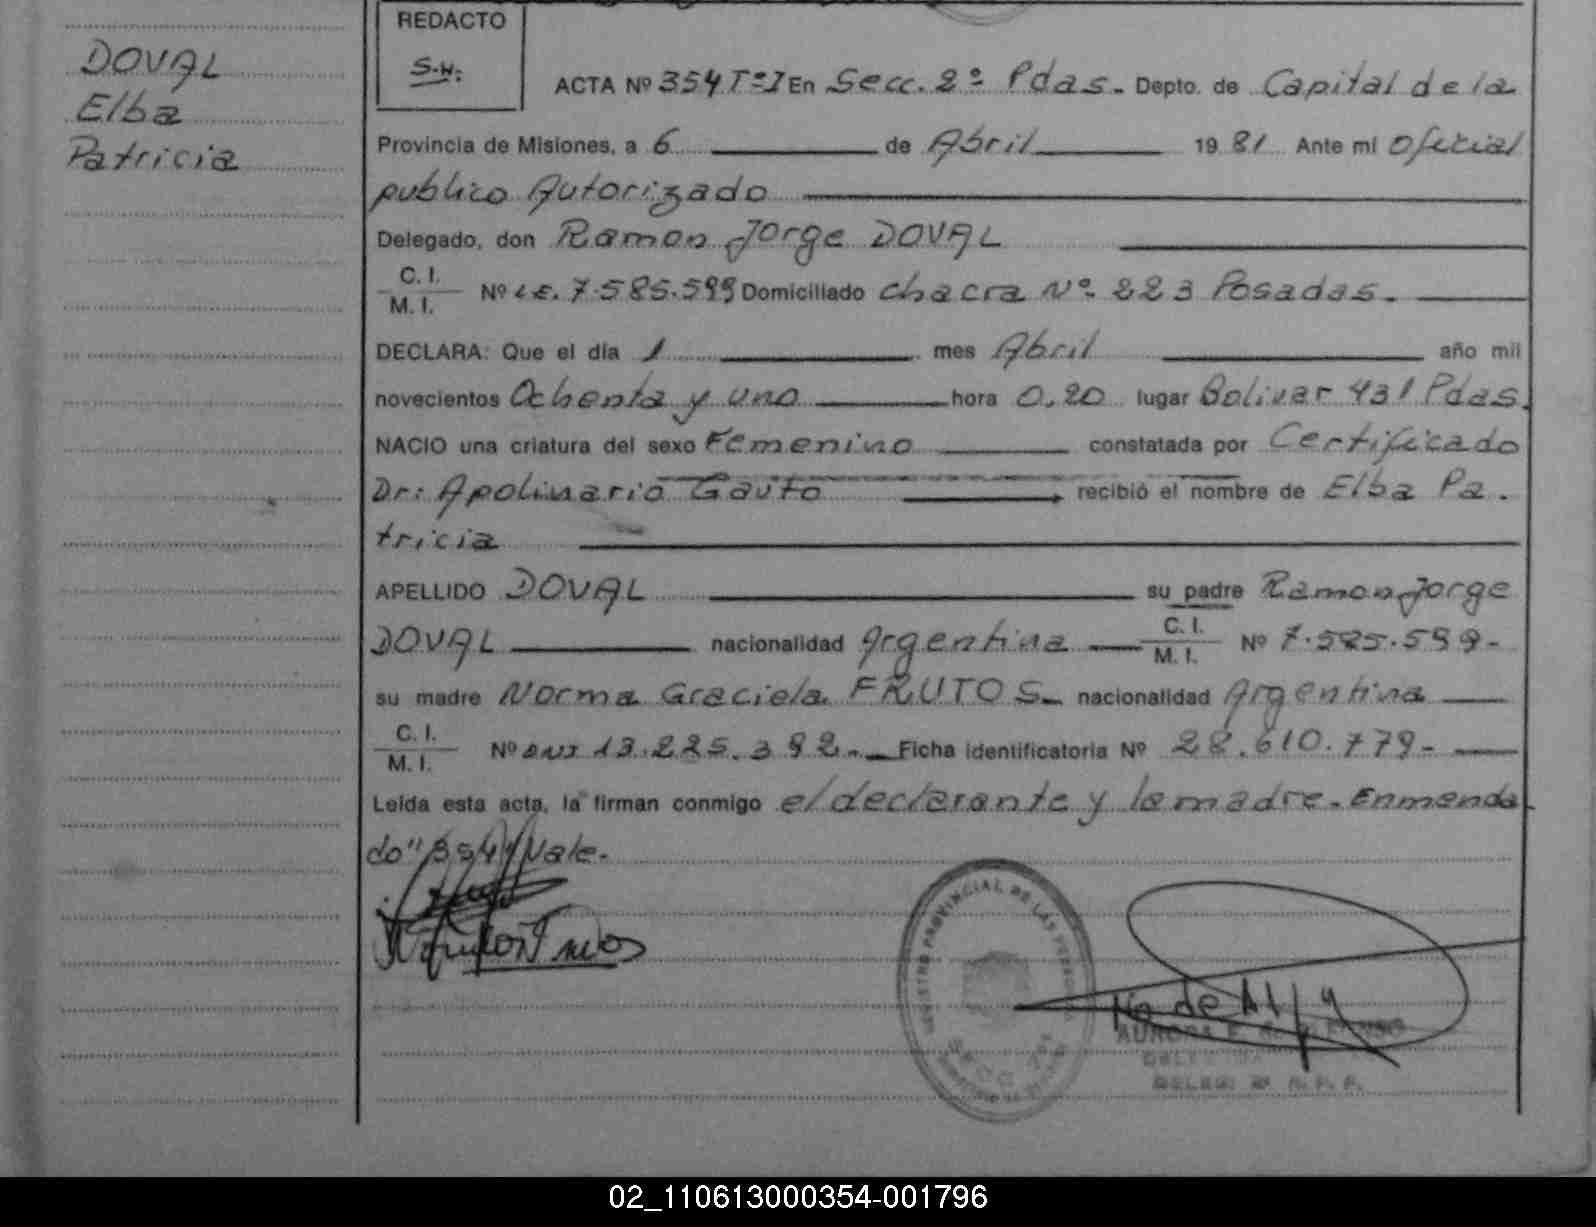 DOVAL
Elba
Patricia
REDACTO
S.H:
ACTA Nº 354 Tº I En Secc. 2º Pdas. Depto. de Capital de la
Provincia de Misiones, a 6 de Abril 1981 Ante mi Oficial
publico Autorizado
Delegado, don Ramon Jorge DOVAL
C. I.
M. I. Nº L.E. 7.585.599 Domiciliado chacra Nº 223 Posadas.
DECLARA: Que el día 1 mes Abril año mil
novecientos Ochenta y uno hora 0.20 lugar Bolivar 431 Pdas.
NACIO una criatura del sexo Femenino constatada por Certificado
Dr: Apolinario Gauto recibió el nombre de Elba Pa.
tricia
APELLIDO DOVAL su padre Ramon Jorge
DOVAL nacionalidad Argentina C. I. M. I. Nº 7.585.599-
su madre Norma Graciela FRUTOS. nacionalidad Argentina
C. I.
M. I. Nº DNI 13.225.392.- Ficha identificatoria Nº 28.610.779-
Leída esta acta, la firman conmigo el declarante y la madre. Enmenda
do "354" Vale.
REGISTRO PROVINCIAL DE LAS PERSONAS
AURORA
02_110613000354-001796